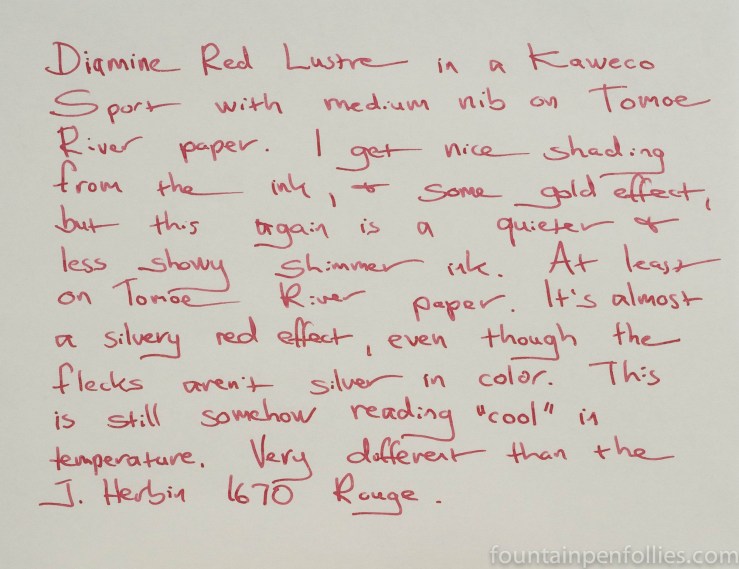 Diamine Red Lustre in a Kaweco
Sport with medium nib on Tomoe
River paper. I get nice shading
from the ink, & some gold effect,
but this again is a quieter &
less showy shimmer ink. At least
on Tomoe River paper. It's almost
a silvery red effect, even though the
flecks aren't silver in color. This
is still somehow reading "cool" in
temperature. Very different than the
J. Herbin 1670 Rouge.
fountainpenfollies.com